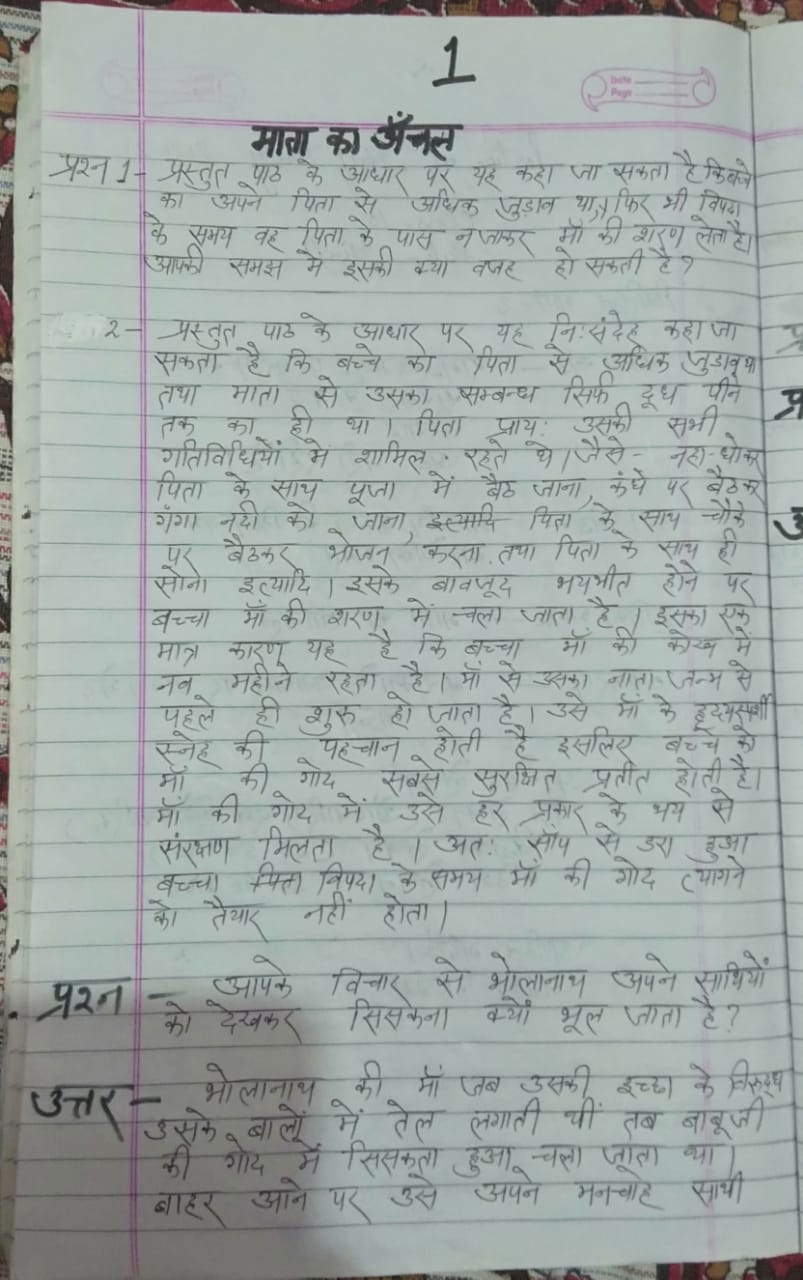 1
Date
Page
माता का अँचल
प्रश्न 1- प्रस्तुत पाठ के आधार पर यह कहा जा सकता है कि बच्चे
का अपने पिता से अधिक जुड़ाव था, फिर भी विपदा
के समय वह पिता के पास न जाकर माँ की शरण लेता है।
आपकी समझ में इसकी क्या वजह हो सकती है?
2- प्रस्तुत पाठ के आधार पर यह नि:संदेह कहा जा
सकता है कि बच्चे का पिता से अधिक जुडाव था
तथा माता से उसका सम्बन्ध सिर्फ दूध पीने
तक का ही था। पिता प्राय: उसकी सभी
गतिविधियों में शामिल रहते थे। जैसे- नहा-धोकर
पिता के साथ पूजा में बैठ जाना, कंधे पर बैठकर
गँगा नदी को जाना, इत्यादि पिता के साथ चौके
पर बैठकर भोजन करना तथा पिता के साथ ही
सोना इत्यादि। इसके बावजूद भयभीत होने पर
बच्चा माँ की शरण में चला जाता है। इसका एक
मात्र कारण यह है कि बच्चा माँ की कोख में
नव महीने रहता है। माँ से उसका नाता जन्म से
पहले ही शुरू हो जाता है। उसे माँ के हृदयस्पर्शी
स्नेह की पहचान होती है इसलिए बच्चे को
माँ की गोद सबसे सुरक्षित प्रतीत होती है।
माँ की गोद में उसे हर प्रकार के भय से
संरक्षण मिलता है। अत: साँप से डरा हुआ
बच्चा पिता विपदा के समय माँ की गोद त्यागने
को तैयार नहीं होता।
प्रश्न - आपके विचार से भोलानाथ अपने साथियों
को देखकर सिसकना क्यों भूल जाता है?
उत्तर - भोलानाथ की माँ जब उसकी इच्छा के विरुद्ध
उसके बालों में तेल लगाती थीं तब बाबूजी
की गोद में सिसकता हुआ चला जाता था।
बाहर आने पर उसे अपने मनचाहे साथी